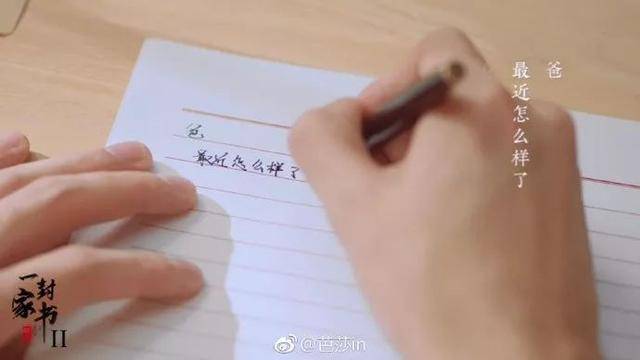 爸
最近怎么样了
爸
最近怎么样了
一封家书
II
@芭莎in